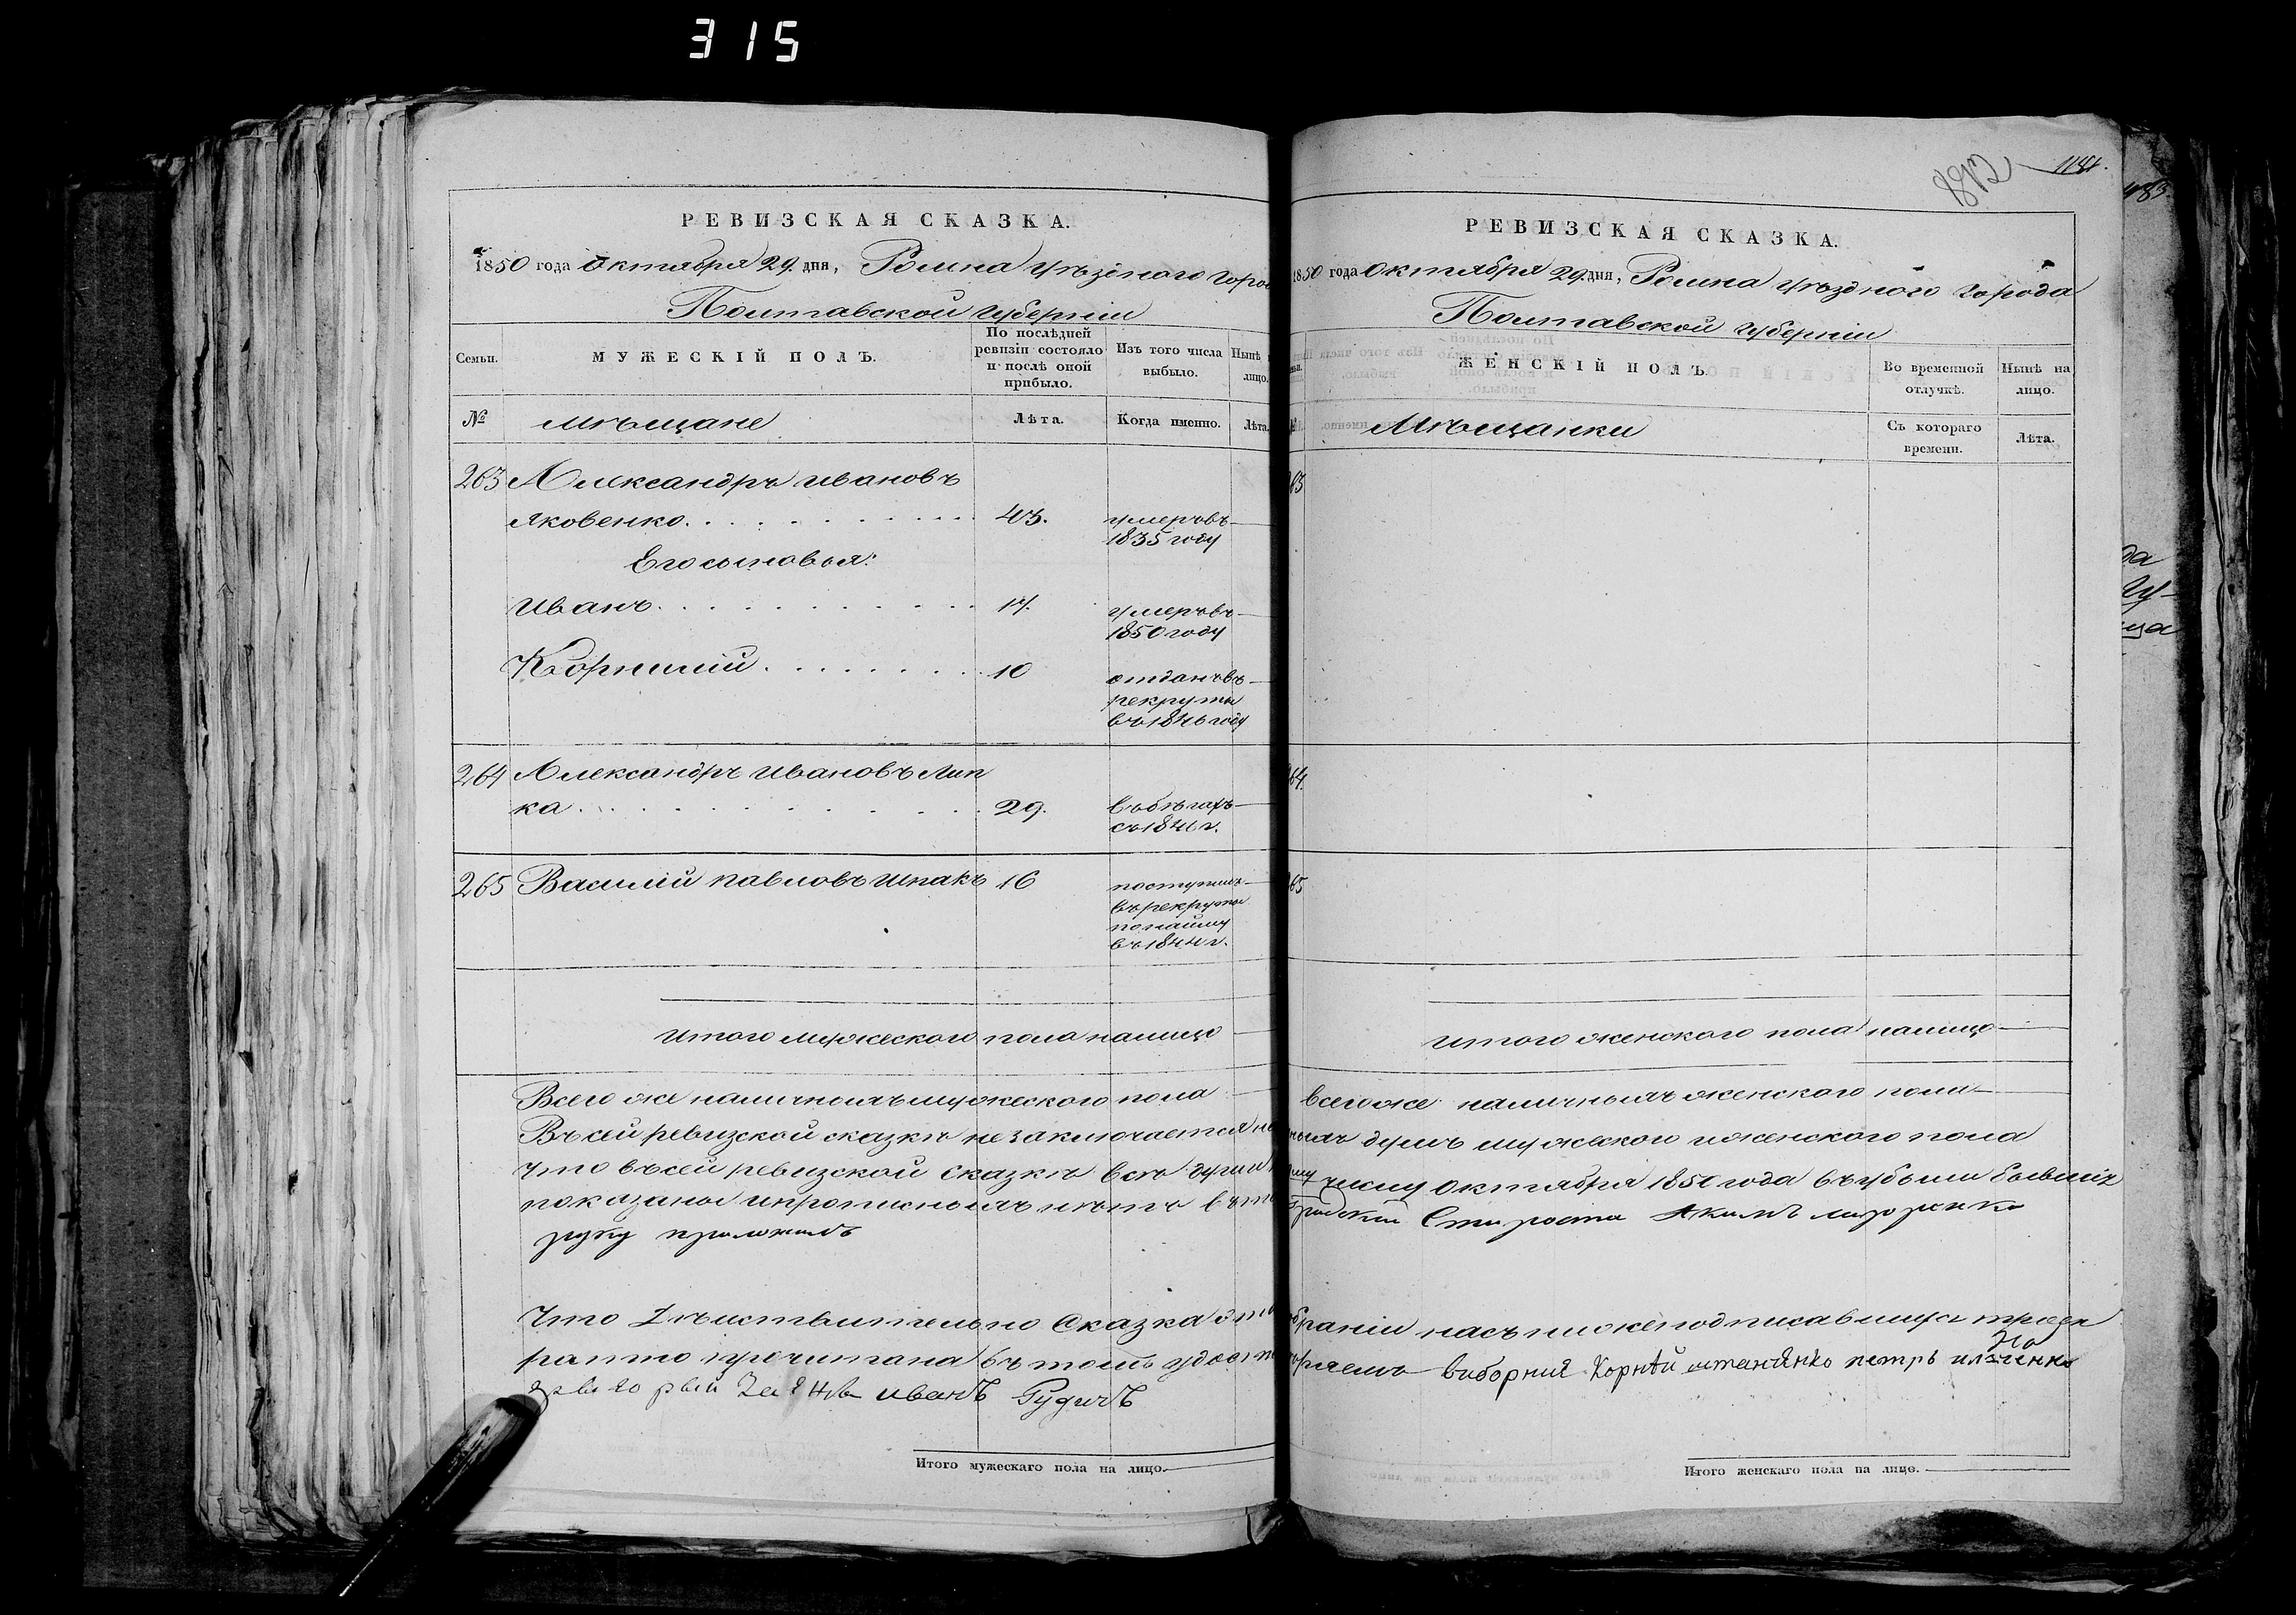 315
РЕВИЗСКАЯ СКАЗКА.
1850 года Октября 29. дня, Ромна уѣзднаго горо
Полтавской губерніи
Семьи.
МУЖЕСКІЙ ПОЛЪ.
По послѣдней ревизіи состояло и послѣ оной прибыло.
Изъ того числа выбыло.
Нынѣ лицо.
№
мѣщане
Лѣта.
Когда именно.
Лѣта.
263 Александръ ивановъ
Яковенко 43. умеръ въ
1835 году
Его сыновья:
Иванъ 17. умеръ въ
1850 году
Корнилій 10 отданъ въ
рекруты
въ 1846 году
264 Александръ ивановъ Лип
ка 29. въ бѣгахъ
съ 1846 г.
265 Василій павловъ шпакъ 16 поступилъ
въ рекруты
по найму
въ 1844 г.
итого мужескаго пола налицо
Всего же наличныхъ мужескаго пола
Въ сей ревизской сказкѣ не заключается
что въ сей ревизской сказкѣ всѣ души
показаны и прописныхъ нѣтъ въ
руку приложилъ
Что дѣйствительно Сказка
прочитана въ томъ
иванъ Рудичъ
Итого мужескаго пола на лицо.
1181.
РЕВИЗСКАЯ СКАЗКА.
1850 года Октября 29. дня, Ромна уѣзднаго города
Полтавской губерніи
ЖЕНСКІЙ ПОЛЪ.
Во временной отлучкѣ.
Нынѣ на лицо.
Мѣщанки
Съ котораго времени.
Лѣта.
63
64.
65
итого женскаго пола налицо
всего же наличныхъ женскаго пола
душъ мужескаго и женскаго пола
числу Октября 1850 года въ убыли бывшіх
Градскій Староста Акимъ
браніи насъ нижеподписавшихся
виборния Корнѣй петръ
Итого женскаго пола на лицо.
483.
да
Гу-
ца